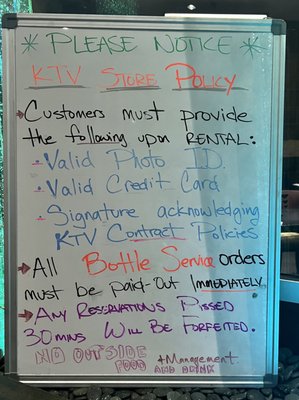 * PLEASE NOTICE *
KTV STORE POLICY
Customers must provide
the following upon RENTAL:
- Valid Photo ID.
- Valid Credit Card
- Signature acknowledging
KTV Contract Policies
All Bottle Service orders
must be paid-out IMMEDIATELY.
ANY RESERVATIONS PASSED
30 mins WILL BE FORFEITED.
NO OUTSIDE +Management
FOOD AND DRINK